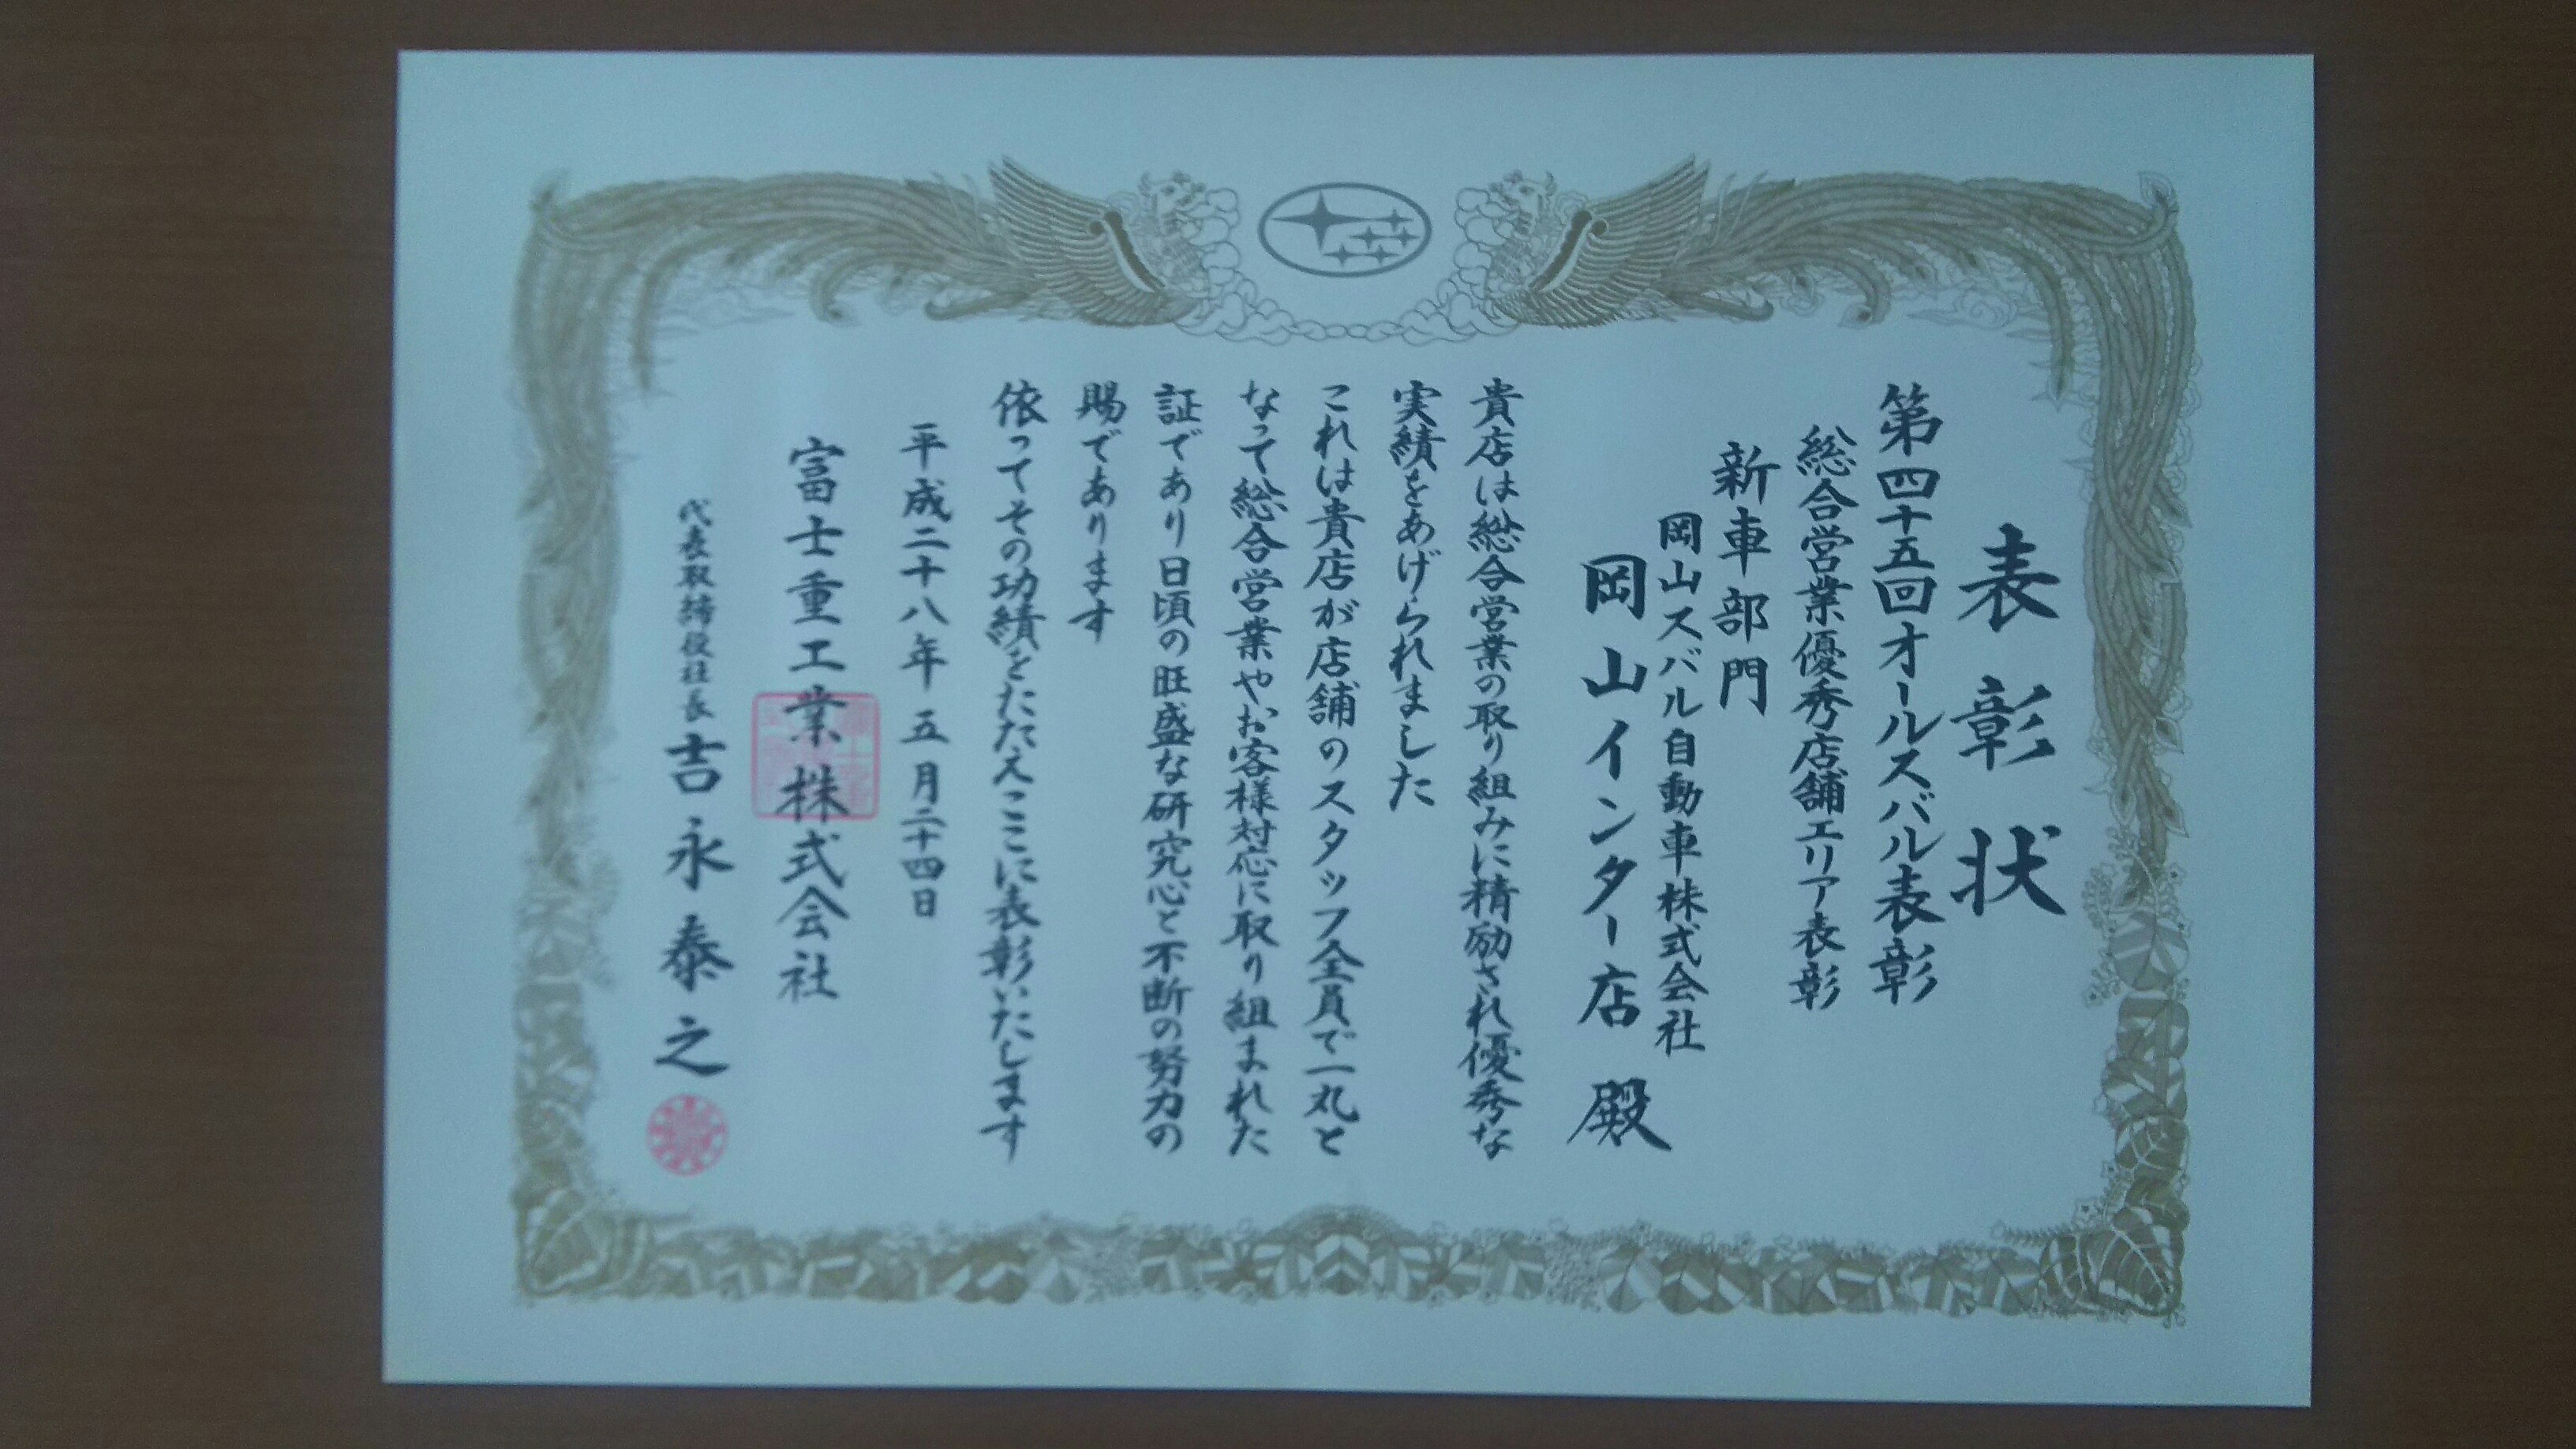 表彰状
第四十五回オールスバル表彰
総合営業優秀店舗エリア表彰
新車部門
岡山スバル自動車株式会社
岡山インター店 殿
貴店は総合営業の取り組みに精励され優秀な
実績をあげられました
これは貴店が店舗のスタッフ全員で一丸と
なって総合営業やお客様対応に取り組まれた
証であり日頃の旺盛な研究心と不断の努力の
賜であります
依ってその功績をたたえここに表彰いたします
平成二十八年五月二十四日
富士重工業株式会社
代表取締役社長 吉永泰之